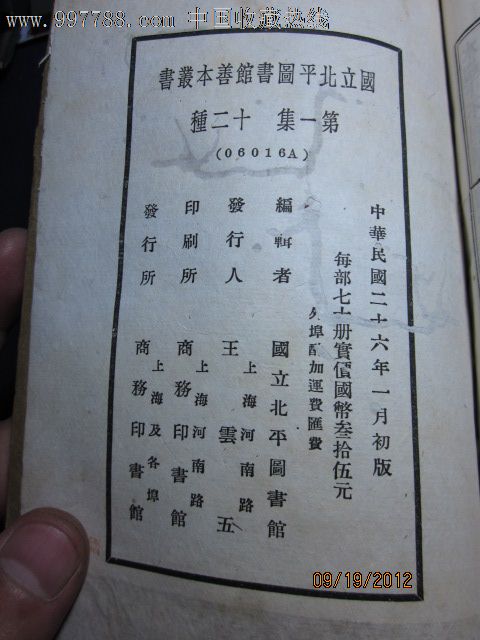 www.997788.com 中国收藏热线
國立北平圖書館善本叢書
第一集 十二種
(06016A)
中華民國二十六年一月初版
每部七十册實價國幣叁拾伍元
外埠酌加運費匯費
編輯者 國立北平圖書館
發行人 王雲五
上海河南路
印刷所 商務印書館
上海河南路
發行所 商務印書館
上海及各埠
09/19/2012